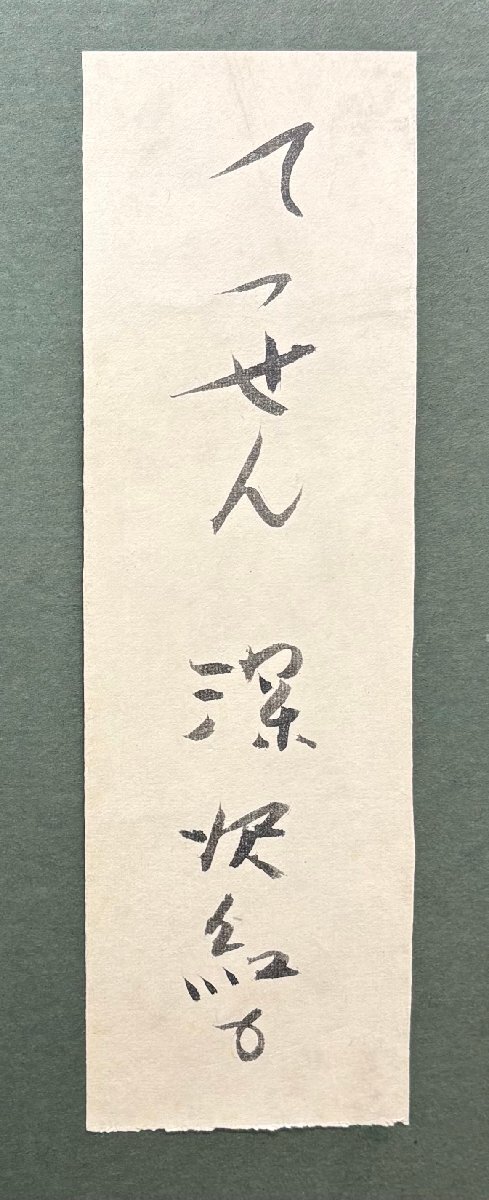 てっせん 深沢紅子